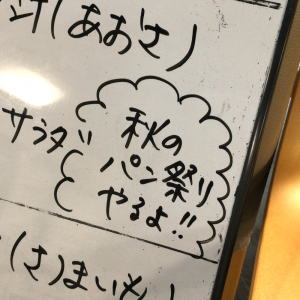 汁(あおさ)
サラダ
秋の
パン祭り
やるよ!!
(さ)まいも